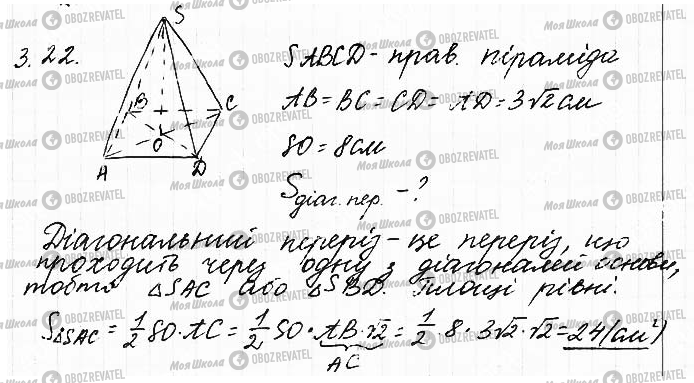 3.22.
S
B
C
O
A
D
SABCD - прав. піраміда
AB = BC = CD = AD = 3√2 см
SO = 8 см
Sдіаг. пер. - ?
Діагональний переріз - це переріз, що
проходить через одну з діагоналей основи,
тобто △SAC або △SBD. Площі рівні.
S△SAC = 1/2 SO · AC = 1/2 SO · AB · √2 = 1/2 · 8 · 3√2 · √2 = 24 (см²)
AC
Моя Школа OBOZREVATEL